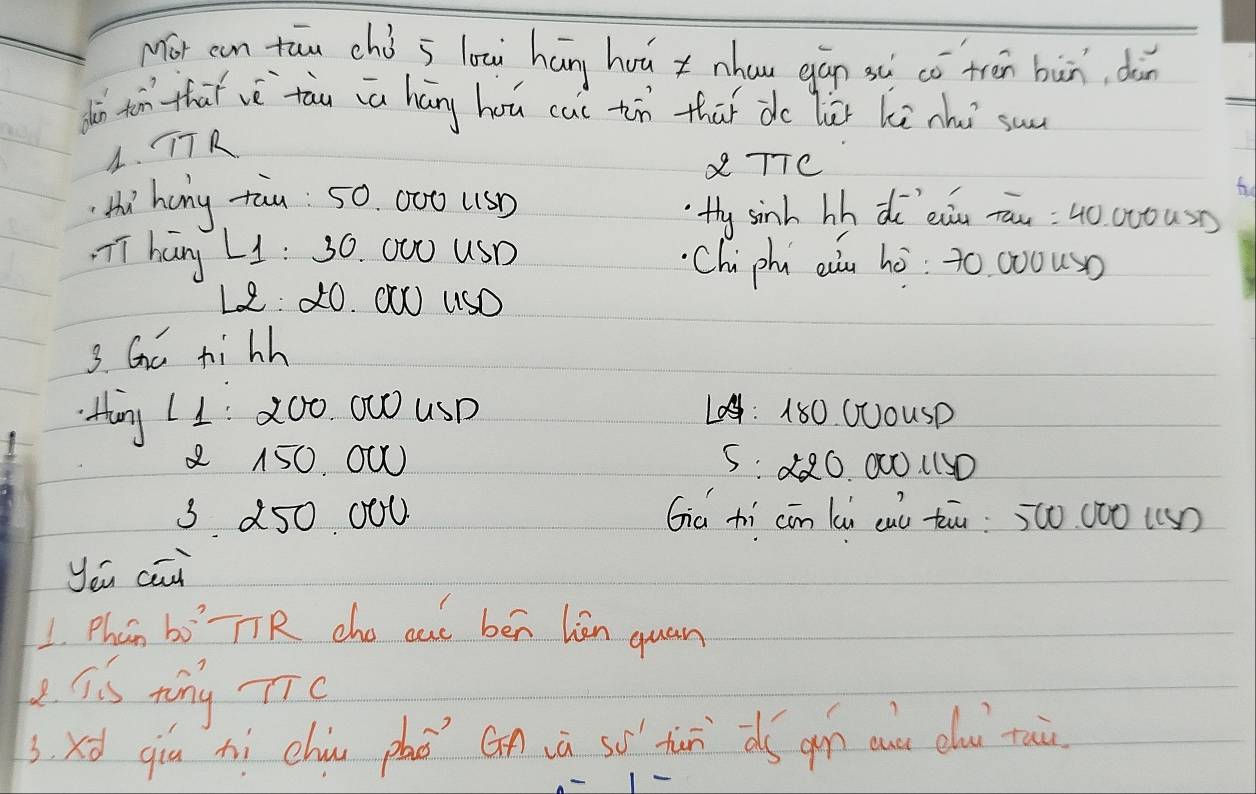 Một con tàu chở 5 loại hàng hoá ≠ nhau gặp sự cố trên biển, dẫn
đến tổn thất về tàu và hàng hoá các tổn thất đc liệt kê như sau
1. TTR
2 TTC
• Hư hỏng tàu : 50.000 USD
• Hy sinh hh để cứu tàu = 40.000 USD
• TT hàng L1 : 30.000 USD
• Chi phí cứu hộ : 70.000 USD
L2 : 20.000 USD
3. Giá trị hh
• Hàng L1 : 200.000 USD
L4 : 180.000 USD
2 150.000
5 : 220.000 USD
3. 250.000.
Giá trị còn lại của tàu : 500.000 USD
Yêu cầu
1. Phân bổ TTR cho các bên liên quan
2. Tís tổng TTC
3. Xđ giá trị chịu phân bổ GA và số tiền đóng góp của chủ tàu.